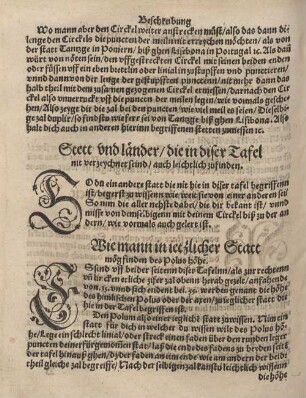 Beschreibung
Wo mann aber den Circkel weiter anstrecken müst/ also das dann die
lenge des Circkels die puncten der meil nit erreychen möchten/ als von
der statt Tanzge in Poniern/ biß ghen Lisibona in Portugal ꝛc. Als dañ
wäre von nöten sein/ den vffgestreckten Circkel mit seinen beiden enden
oder füssen vff ein eben brettlin oder linial in zustupffen vnd punctieren/
vnnd dann von der lenge der gestupfften puncten/ nit mehr dann das
halb theil mit dem zusamen gezognen Circkel ermessen/ darnach den Circ
kel also vnuerruckt vff die puncten der meilen legen/ wie vormals geschehẽ/
Also zeygt dir die zal bei den puncten/ wie viel meil es seien/ Die selbi
ge zal duplir/ so findstu wie fer sei von Tanzge biß ghen Lisibona. Also
halt dich auch in anderen hierinn begriffenen stetten zumessen ꝛc.
Stett vnd länder/ die in diser Tafel
nit verzeychnet seind/ auch leichtlich zufinden.
So dir ein andere statt die nit hie in diser tafel begriffenn
ist/ begerst zu wissen wie weit sie von einer anderen sei/
So nim die aller nechst dabei/ die dir bekant ist/ vnnd
misse von demselbigenn mit deinem Circkel biß zu der an
dern/ wie vormals auch gelert ist.
Wie mann in ietzlicher Statt
mög finden des Polus höhe.
Es seind vff beider seiten in diser Tafelnn/ als zur rechten vñ
lincken etliche ziffer zal obenn herab gezelt/ anfahende
von 55. vnnd sich endent bei 39. werden genant die höhe
des himlischen Polus oder der axen/ zu ieglicher statt die
hie in der Tafel begriffen ist.
Den Polum also einer ieglicht statt zuwissen. Nim ein
statt für dich in welcher du wissen wilt des Polus hö
he/ Lege ein schlecht linial/ oder streck einen faden über den runden leger
puncten deiner fürgenomen statt/ laß die ende des fadens zu beyden seitẽ
der tafel hinauß ghen/ dz der faden an eim ende wie am andern der beide
theil gleiche zal begreiffe/ Nach der selbigen zal kanstu leichtlich wissenn
die höhe